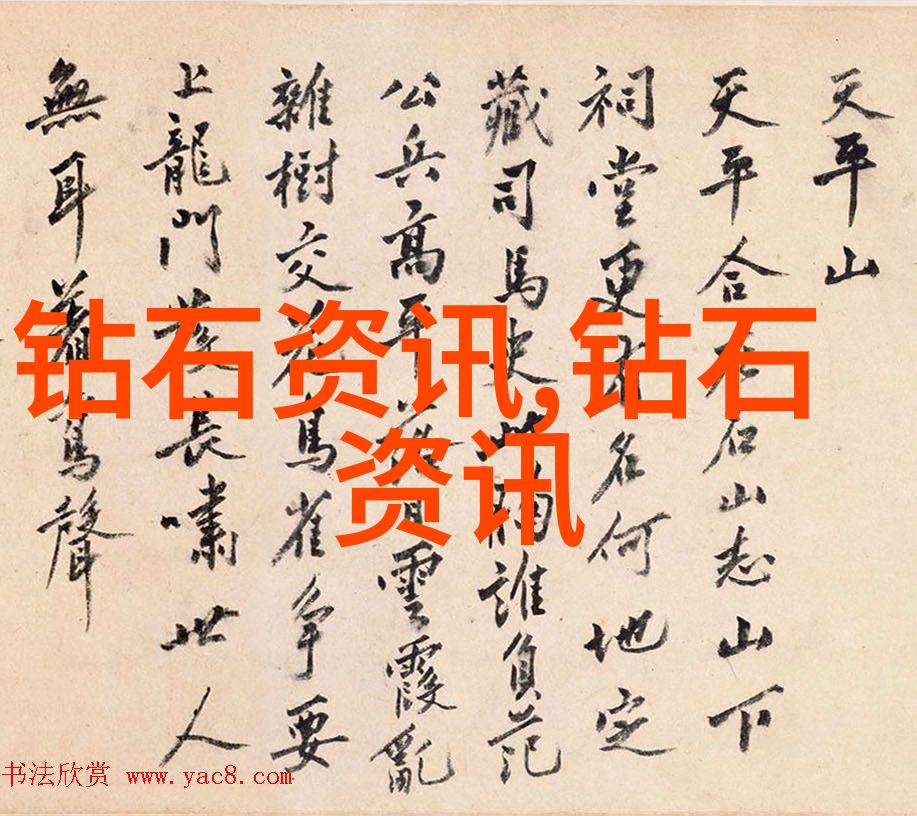 天平山
天平合石山志山下
祠堂更名何地定
藏司馬史誰負范
公兵高平雲霞亂
雜樹交鳥雀爭要
上龍門長嘯世人
無耳聲
钻石资讯,钻石
资讯
书法欣赏 www.yac8.com